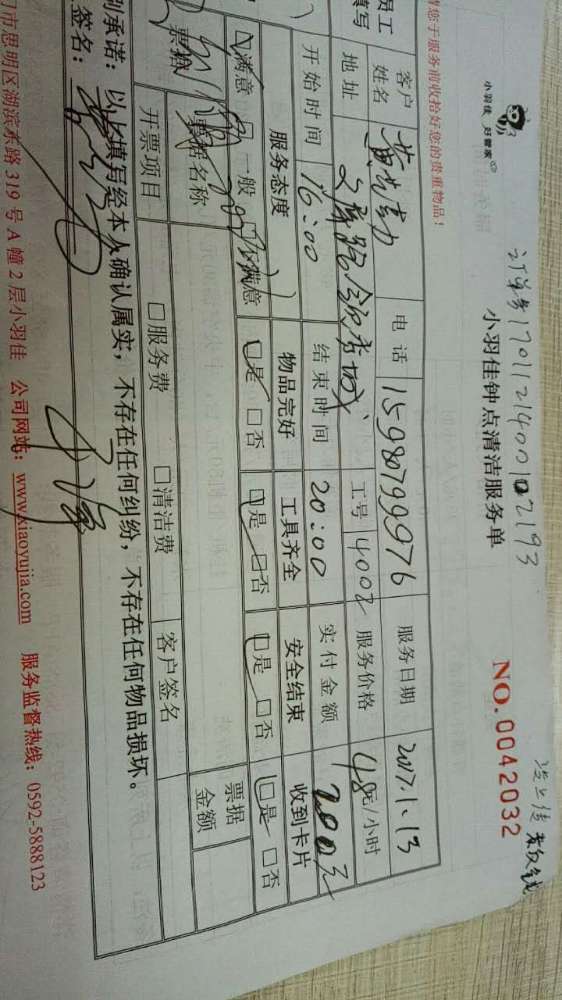 小羽佳 好管家
订单号1701121400102193
小羽佳钟点清洁服务单
NO.0042032
请您于服务前收拾好您的贵重物品！
员工填写
客户姓名 电话 15980799976 服务日期 2017.1.13
地址 工号 4002 服务价格 48元/小时
开始时间 16:00 结束时间 20:00 实付金额 200元
服务态度 物品完好 工具齐全 安全结束 收到卡片
☑满意 □一般 □不满意 ☑是 □否 ☑是 □否 ☑是 □否 ☑是 □否
票据名称 票据金额
开票项目 □服务费 □清洁费 客户签名
别承诺：以上填写经本人确认属实，不存在任何纠纷，不存在任何物品损坏。
签名：
门市思明区湖滨东路 319 号 A 幢 2 层小羽佳 公司网站：www.xiaoyujia.com 服务监督热线：0592-5888123